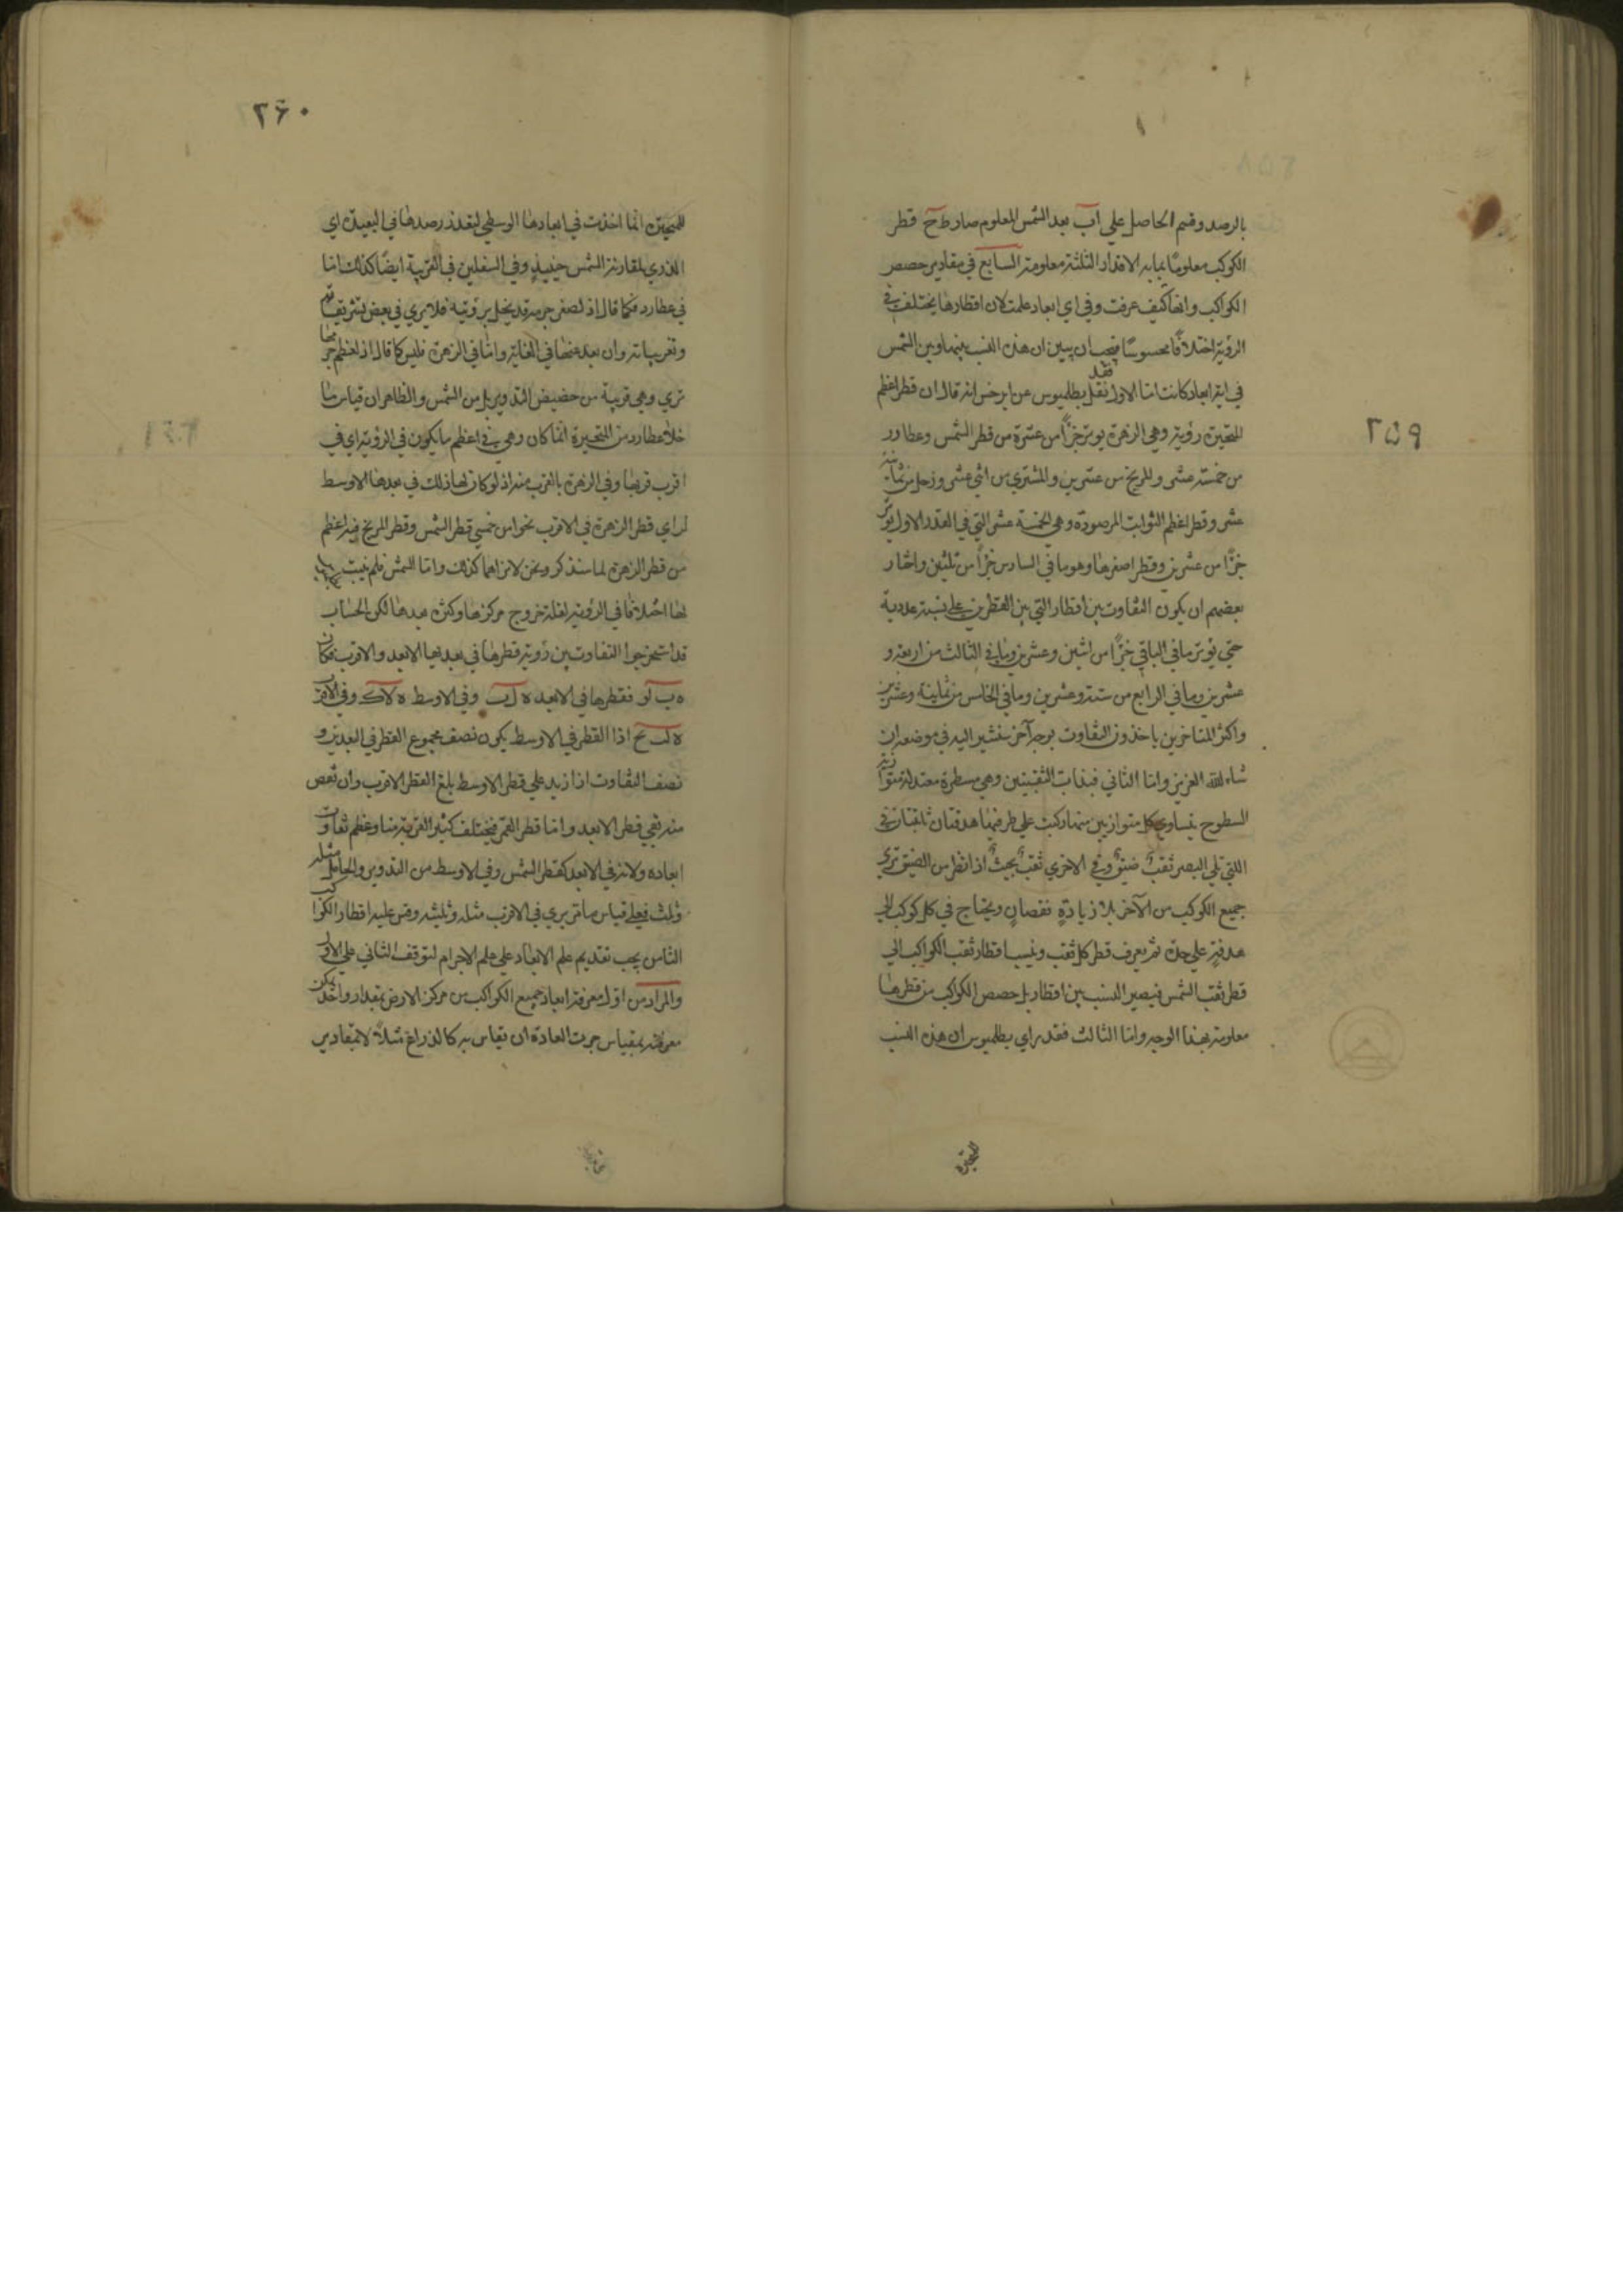 ٢٥٩
بالرصد وقسم الحاصل على اب بعد الشمس المعلوم صار ط ح قطر
الكوكب معلوما بما به الاقدار الثلثة معلومة السابع في مقادير حصص
الكواكب وانها كيف عرفت وفي اي ابعاد علمت لان اقطارها يختلف في
الروية اختلافا محسوسا فيجب ان يبين ان هذه النسب بينها وبين الشمس
في اية ابعاد كانت اما الاول فقد نقل بطلميوس عن ابرخس انه قال ان قطر اعظم
المتحيرة رؤية وهي الزهرة يوتر جزأ من عشرة من قطر الشمس وعطارد
من خمسة عشر والمريخ من عشرين والمشتري من اثني عشر وزحل من ثمانية
عشر وقطر اعظم الثوابت المرصودة وهي الخمسة عشر التي في القدر الاول يوتر
جزأ من عشرين وقطر اصغرها وهو ما في السادس جزأ من ثلثين واختار
بعضهم ان يكون التفاوت بين اقطار التي بين القطرين على نسبة عددية
حتى يوتر ما في الباقي جزأ من اثنين وعشرين وما في الثالث من اربعة و
عشرين وما في الرابع من ستة وعشرين وما في الخامس من ثمانية وعشرين
واكثر المتاخرين ياخذون التفاوت بوجه آخر سنشير اليه في موضعه ان
شاء الله العزيز واما الثاني فبذات الثقبتين وهي مسطرة معتدلة متوازية
السطوح يتساوى كل متوازيين منها ركبت على طرفيها هدفتان ثقبتان في
اللتي تلي البصر ثقب ضيق وفي الاخرى ثقب بحيث اذا نظر من الضيق ترى
جميع الكوكب من الآخر بلا زيادة نقصان ويحتاج في كل كوكب الى
هدفة على حدة ثم يعرف قطر كل ثقب وينسب اقطار ثقب الكواكب الى
قطر ثقب الشمس فيصير النسب بين اقطار بل حصص الكواكب من قطرها
معلومة بهذا الوجه واما الثالث فقد راى بطلميوس ان هذه النسب
للمتحيرة
٢٦٠
للمتحيرة انما اخذت في ابعادها الوسطى لتعذر رصدها في البعيدة اي
الذرى لمقارنة الشمس حينئذ وفي السفلين في القريبة ايضا كذلك اما
في عطارد فكما قال اذ لصغر جرمه قد يخل برؤيته فلا يرى في بعض تشريقاته
وتغريباته وان بعد عنها في الغاية واما في الزهرة فليس كما قال اذ لعظم جرمها
ترى وهي قريبة من حضيض التدوير بل من الشمس والظاهر ان قياس ما
خلا عطارد من المتحيرة انما كان وهي في اعظم ما يكون في الرؤية اي في
اقرب قربها وفي الزهرة بالقرب منه اذ لو كان لها ذلك في بعدها الاوسط
لراى قطر الزهرة في الاقرب نحوا من خمسي قطر الشمس وقطر المريخ فيه اعظم
من قطر الزهرة لما سنذكر ونحن لا نراهما كذلك واما الشمس فلم يثبت
لها اختلافا في الرؤية لقلة خروج مركزها وكثرة بعدها لكن الحساب
قد استخرجوا التفاوت بين رؤية قطرها في بعديها الابعد والاقرب فكان
ه ب لو فقطرها في الابعد ه لب وفي الاوسط ه لاك وفي الاقرب
ه لب مح اذا القطر في الاوسط يكون نصف مجموع القطر في البعدين و
نصف التفاوت اذا زيد على قطر الاوسط بلغ القطر الاقرب وان نقص
منه بقي قطر الابعد واما قطر القمر فيختلف كثيرا لقربه منا وعظم تفاوت
ابعاده ولانه في الابعد كقطر الشمس وفي الاوسط من التدوير والحامل مثله
وثلث فعلى قياس ما تر يرى في الاقرب مثله وثلثيه وقس عليه اقطار الكواكب
الثامن يجب تقديم علم الابعاد على علم الاجرام لتوقف الثاني على الاول
والمراد من الاول معرفة ابعاد جميع الكواكب من مركز الارض بمقدار واحد يمكن
معرفته بمقياس جرت العادة ان يقاس به كالذراع مثلا لا بمقادير